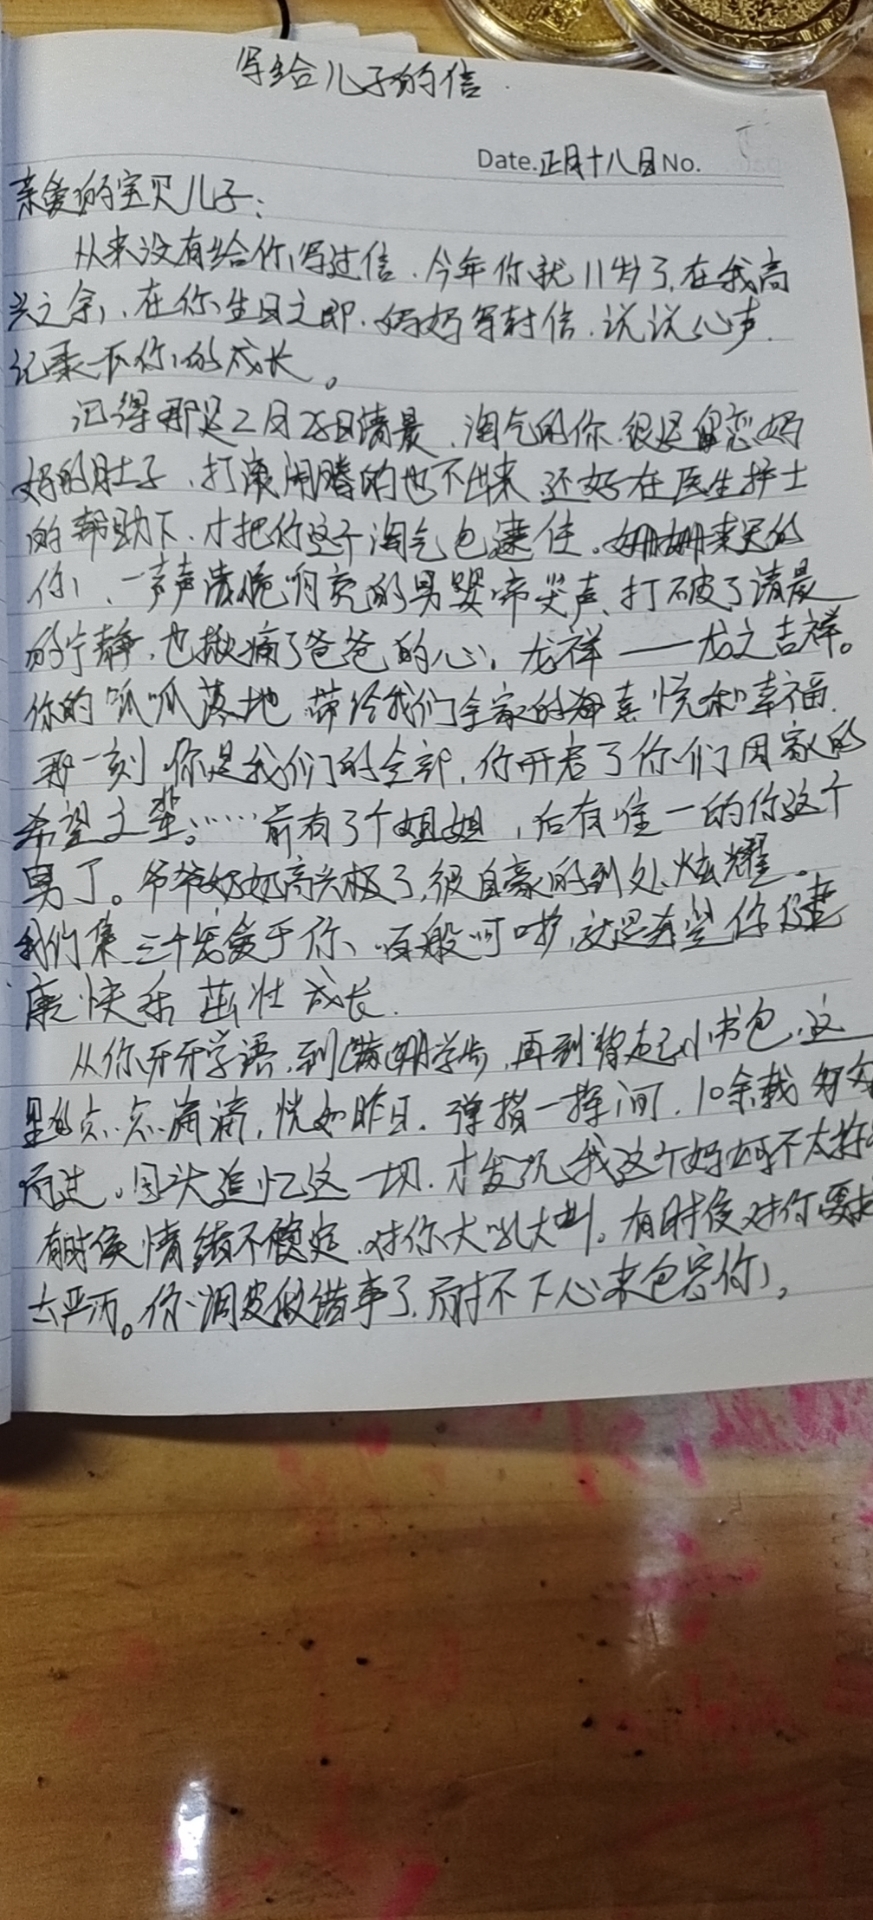 写给儿子的信
Date.正月十八日No.
亲爱的宝贝儿子:
从来没有给你写过信.今年你就11岁了,在我高
兴之余,在你生日之即.妈妈写封信.说说心声.
记录一下你的成长。
记得那是2月25日清晨,淘气的你很是留恋妈
妈的肚子,打滚闹腾的也不出来,还好在医生护士
的帮助下,才把你这个淘气包逮住。姗姗来迟的
你,一声声清脆响亮的男婴啼哭声,打破了清晨
的宁静,也揪痛了爸爸的心。龙祥——龙之吉祥。
你的呱呱落地 带给我们全家的 喜悦和幸福.
那一刻 你是我们的全部,你开启了你们 家的
希望之辈。……前有了个姐姐,后有惟一的你这个
男丁。爷爷奶奶高兴极了,很自豪的到处炫耀。
我们集三千宠爱于你、百般呵护,就是希望你健
康快乐茁壮成长.
从你牙牙学语,到蹒跚学步,再到背起小书包,这
里的点点滴滴,恍如昨日.弹指一挥间.10余载匆匆
而过。回头追忆这一切.才发现我这个妈妈不太称
有时候情绪不稳定.对你大吼大叫。有时候对你要求
太严厉。你调皮做错事了.耐不下心来包容你。